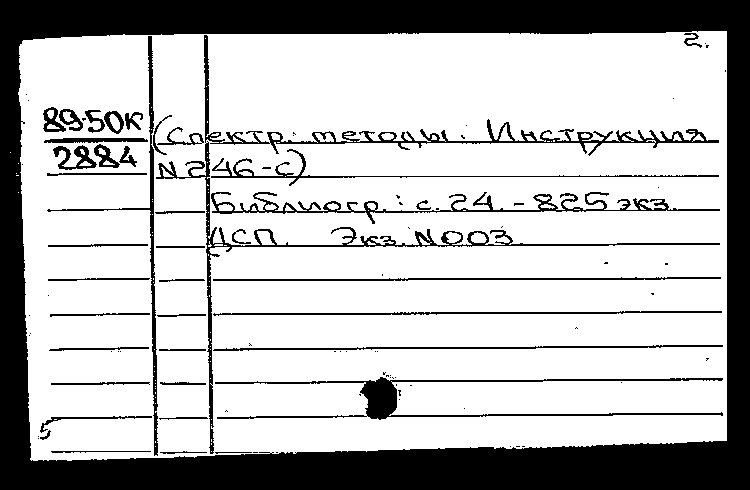 2.
89-50к (Спектр. методы. Инструкция
2884 N 246-с)
Библиогр.: с. 24. - 825 экз.
ДСП. Экз. N 003.
5